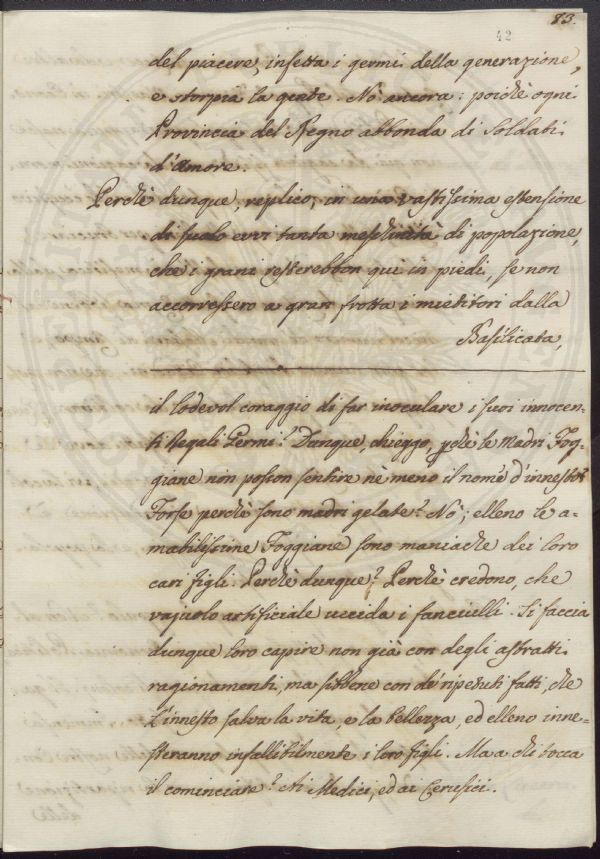 83.
42
del piacere, infetta i germi della generazione,
e storpia la gente. Nò ancora: poichè ogni
Provincia del Regno abbonda di Soldati
d'amore.
Perchè dunque, replico, in una vastissima estensione
di suolo evvi tanta meschinità di popolazione,
che i grani resterebbon quì in piedi, se non
accorressero a gran frotta i mietitori dalla
Basilicata,
il lodevol coraggio di far inoculare i suoi innocen-
ti Regali Germi? Dunque, chieggo, pchè le Madri Fog-
giane non posson sentire nè meno il nome d'innesto?
Forse perchè sono madri gelate? Nò; elleno le a-
mabilissime Foggiane sono maniache dei loro
cari figli. Perchè dunque? Perchè credono, che
vajuolo artificiale uccida i fanciulli. Si faccia
dunque loro capire non già con degli astratti
ragionamenti, ma sibbene con de' ripetuti fatti, che
l'innesto salva la vita, e la bellezza, ed elleno inne-
steranno infallibilmente i loro figli. Ma a chi tocca
il cominciare? Ai Medici, ed ai Cerusici.